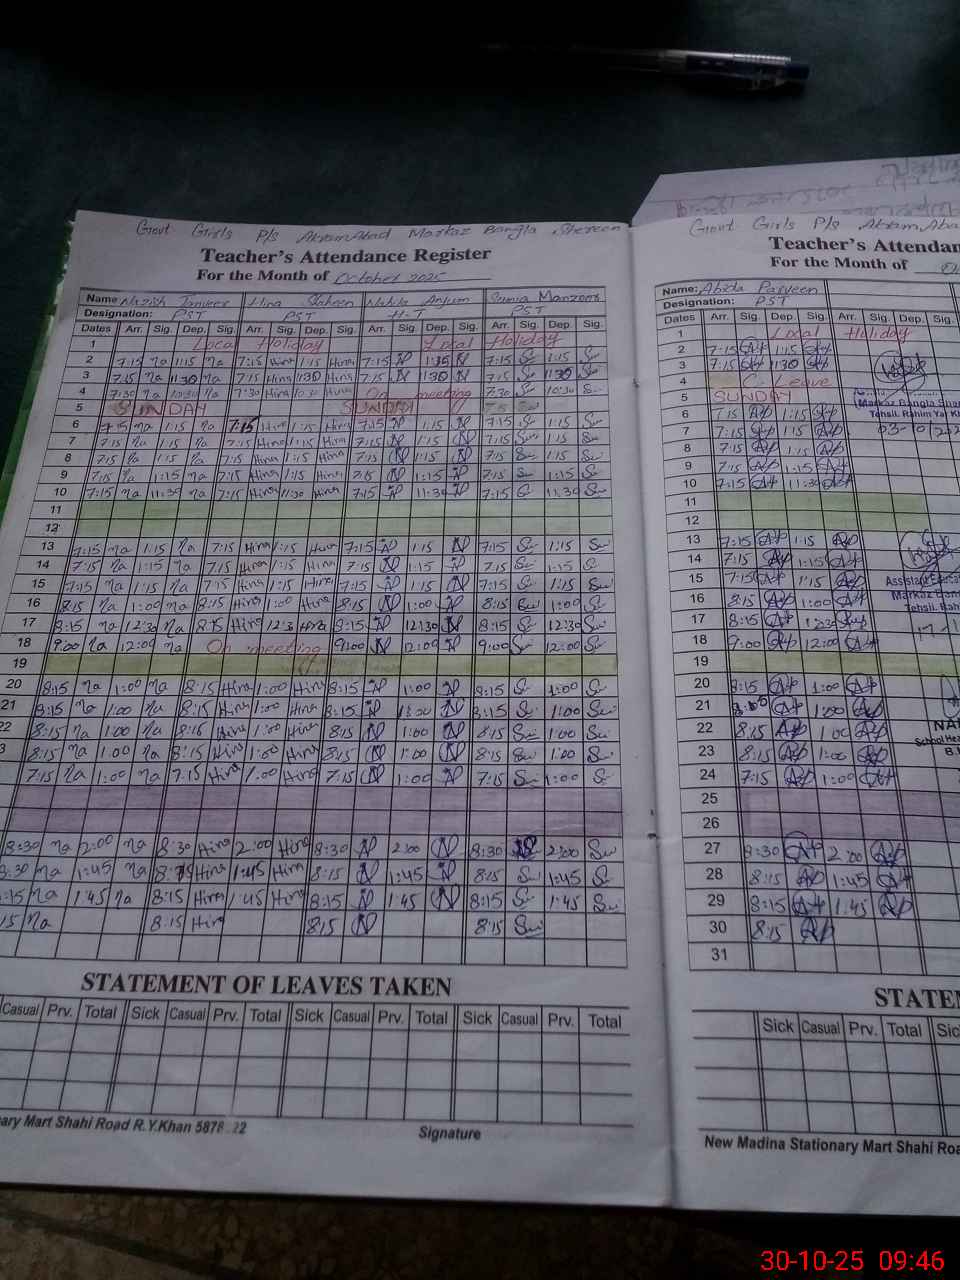 Govt Girls P/s Akram Abad Markaz Bangla Shereen
Teacher's Attendance Register
For the Month of October 2025
Name Nazish Tanveer Hina Shaheen Nabila Anjum Sumia Manzoor
Designation: PST PST H-T PST
Dates Arr. Sig. Dep. Sig. Arr. Sig. Dep. Sig. Arr. Sig. Dep. Sig. Arr. Sig. Dep. Sig.
1 Local Holiday Local Holiday
2 7:15 Na 1:15 Na 7:15 Hina 1:15 Hina 7:15 N 1:35 N 7:15 Su 1:15 Su
3 7:15 Na 11:30 Na 7:15 Hina 11:30 Hina 7:15 N 11:30 N 7:15 Su 11:30 Su
4 7:30 Na 10:30 Na 7:30 Hina 10:30 Hina On meeting 7:30 Su 10:30 Su
5 SUNDAY SUNDAY
6 7:15 Na 1:15 Na 7:15 Hina 1:15 Hina 7:15 N 1:15 N 7:15 Su 1:15 Su
7 7:15 Na 1:15 Na 7:15 Hina 1:15 Hina 7:15 N 1:15 N 7:15 Su 1:15 Su
8 7:15 Na 1:15 Na 7:15 Hina 1:15 Hina 7:15 N 1:15 N 7:15 Su 1:15 Su
9 7:15 Na 1:15 Na 7:15 Hina 1:15 Hina 7:15 N 1:15 N 7:15 Su 1:15 Su
10 7:15 Na 11:30 Na 7:15 Hina 11:30 Hina 7:15 N 11:30 N 7:15 Su 11:30 Su
11
12
13 7:15 Na 1:15 Na 7:15 Hina 1:15 Hina 7:15 N 1:15 N 7:15 Su 1:15 Su
14 7:15 Na 1:15 Na 7:15 Hina 1:15 Hina 7:15 N 1:15 N 7:15 Su 1:15 Su
15 7:15 Na 1:15 Na 7:15 Hina 1:15 Hina 7:15 N 1:15 N 7:15 Su 1:15 Su
16 8:15 Na 1:00 Na 8:15 Hina 1:00 Hina 8:15 N 1:00 N 8:15 Su 1:00 Su
17 8:15 Na 12:30 Na 8:15 Hina 12:3 Hina 8:15 N 12:30 N 8:15 Su 12:30 Su
18 9:00 Na 12:00 Na On meeting 9:00 N 12:00 N 9:00 Su 12:00 Su
19
20 8:15 Na 1:00 Na 8:15 Hina 1:00 Hina 8:15 N 1:00 N 8:15 Su 1:00 Su
21 8:15 Na 1:00 Na 8:15 Hina 1:00 Hina 8:15 N 1:00 N 8:15 Su 1:00 Su
22 8:15 Na 1:00 Na 8:15 Hina 1:00 Hina 8:15 N 1:00 N 8:15 Su 1:00 Su
3 8:15 Na 1:00 Na 8:15 Hina 1:00 Hina 8:15 N 1:00 N 8:15 Su 1:00 Su
7:15 Na 1:00 Na 7:15 Hina 1:00 Hina 7:15 N 1:00 N 7:15 Su 1:00 Su
8:30 Na 2:00 Na 8:30 Hina 2:00 Hina 8:30 N 2:00 N 8:30 Su 2:00 Su
8:30 Na 1:45 Na 8:15 Hina 1:45 Hina 8:15 N 1:45 N 8:15 Su 1:45 Su
:15 Na 1:45 Na 8:15 Hina 1:45 Hina 8:15 N 1:45 N 8:15 Su 1:45 Su
15 Na 8:15 Hina 8:15 N 8:15 Su
STATEMENT OF LEAVES TAKEN
Casual Prv. Total Sick Casual Prv. Total Sick Casual Prv. Total Sick Casual Prv. Total
ary Mart Shahi Road R.Y.Khan 5878.22
Signature
Govt Girls P/s Akram Aba
Teacher's Attendan
For the Month of
Name: Abida Parveen
Designation: PST
Dates Arr. Sig. Dep. Sig. Arr. Sig. Dep. Sig.
1 Local Holiday
2 7:15 Ap 1:15 Ap
3 7:15 Ap 11:30 Ap
4 C. Leave
5 SUNDAY
Markaz Bangla Shar
Tehsil. Rahim Yar Kh
6 7:15 Ap 1:15 Ap
7 7:15 Ap 1:15 Ap
8 7:15 Ap 1:15 Ap
9 7:15 Ap 1:15 Ap
10 7:15 Ap 11:30 Ap
11
12
13 7:15 Ap 1:15 Ap
14 7:15 Ap 1:15 Ap
15 7:15 Ap 1:15 Ap
Assistant Educat
16 8:15 Ap 1:00 Ap
Markaz Bang
Tehsil. Rah
17 8:15 Ap 12:30 Ap
18 9:00 Ap 12:00 Ap
19
20 8:15 Ap 1:00 Ap
21 8:15 Ap 1:00 Ap
22 8:15 Ap 1:00 Ap
School Hea
23 8:15 Ap 1:00 Ap
24 7:15 Ap 1:00 Ap
25
26
27 8:30 Ap 2:00 Ap
28 8:15 Ap 1:45 Ap
29 8:15 Ap 1:45 Ap
30 8:15 Ap
31
STATEM
Sick Casual Prv. Total Sic
New Madina Stationary Mart Shahi Roa
30-10-25 09:46